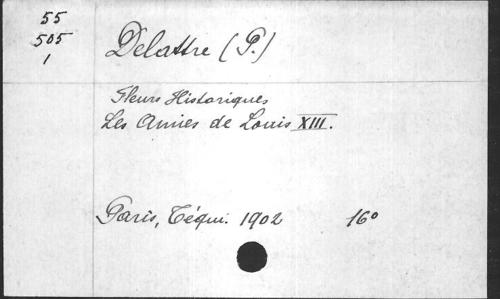 55
505
1
Delattre (P.)
Fleurs Historiques
Les Amies de Louis XIII.
Paris, Téqui. 1902 16°